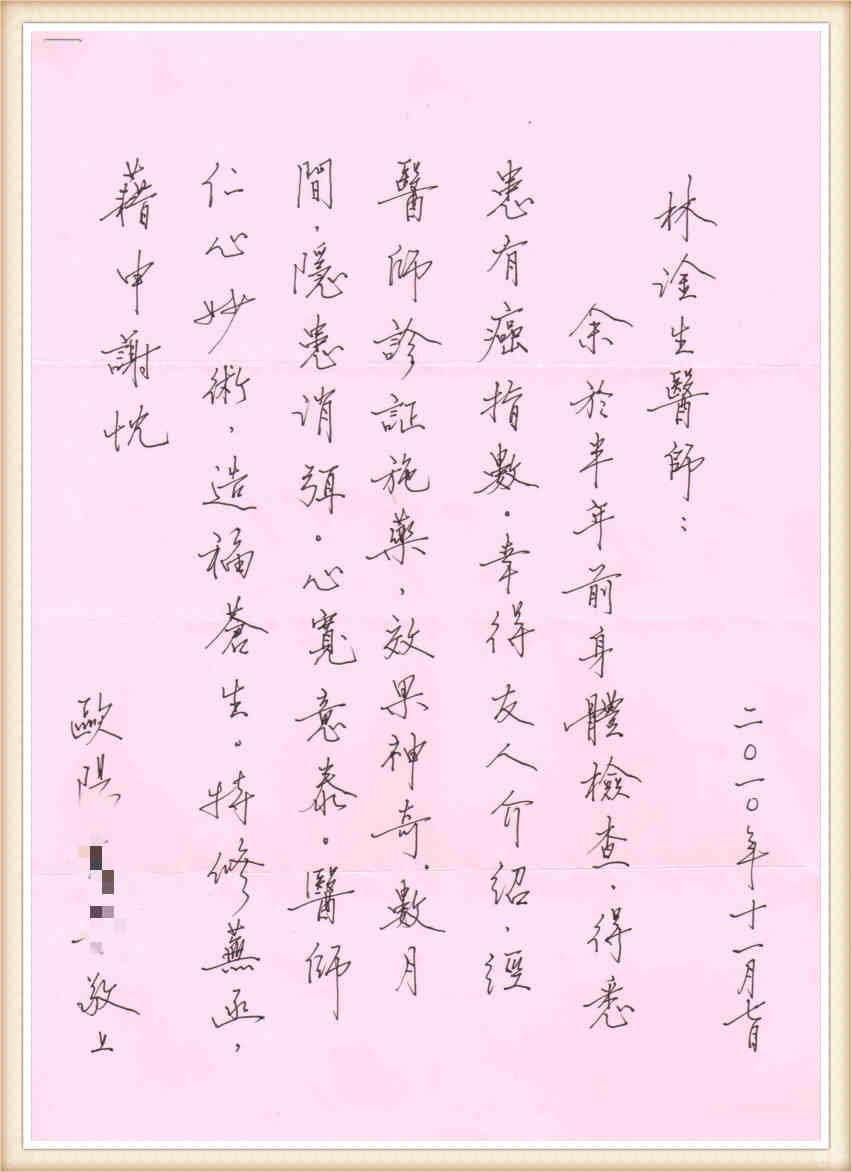 二〇一〇年十一月七日
林淦生醫師：
余於半年前身體檢查，得悉
患有癌指數。幸得友人介紹，經
醫師診証施藥，效果神奇，數月
間，隱患消弭。心寬意泰。醫師
仁心妙術，造福蒼生。特修蕪函，
藉申謝忱
歐陽 敬上